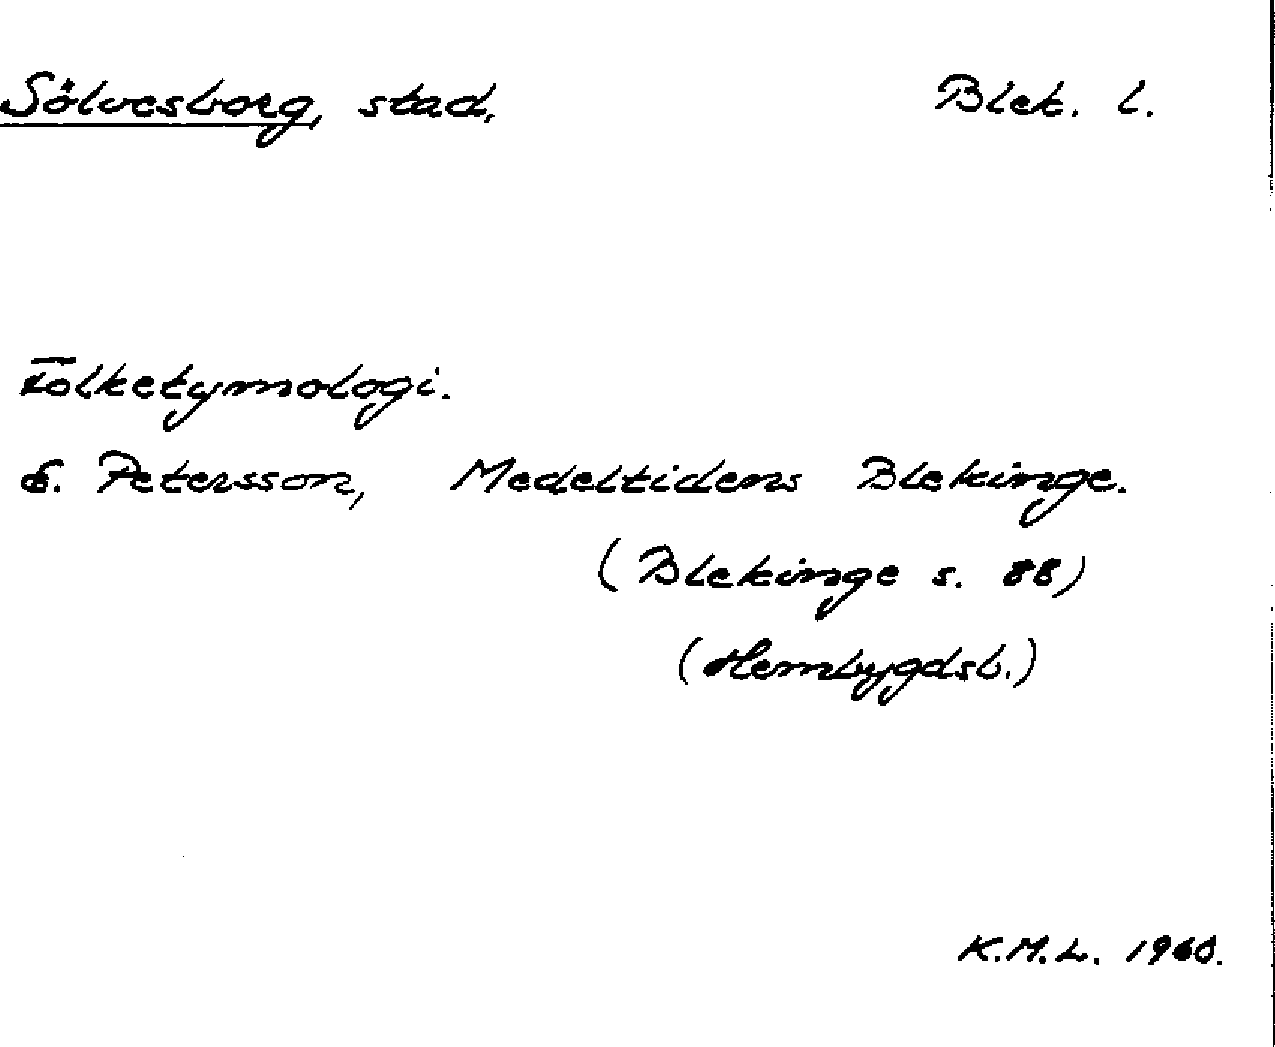 Sölvesborg, stad. Blek. l.
Folketymologi.
E. Petersson, Medeltidens Blekinge.
(Blekinge s. 88)
(Hembygdsb.)
K.M.L. 1960.